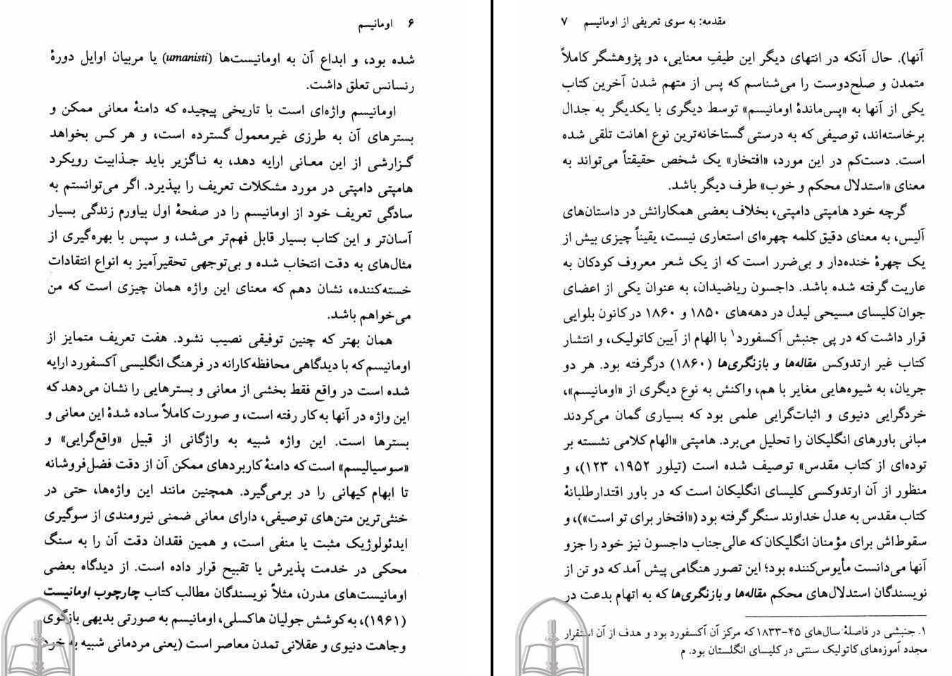 ۶ اومانیسم
شده بود، و ابداع آن به اومانیست‌ها (umanisti) یا مربیان اوایل دورهٔ
رنسانس تعلق داشت.
اومانیسم واژه‌ای است با تاریخی پیچیده که دامنهٔ معانی ممکن و
بسترهای آن به طرزی غیرمعمول گسترده است، و هر کس بخواهد
گزارشی از این معانی ارایه دهد، به ناگزیر باید جذابیت رویکرد
هامپتی دامپتی در مورد مشکلات تعریف را بپذیرد. اگر می‌توانستم به
سادگی تعریف خود از اومانیسم را در صفحهٔ اول بیاورم زندگی بسیار
آسان‌تر و این کتاب بسیار قابل فهم‌تر می‌شد، و سپس با بهره‌گیری از
مثال‌های به دقت انتخاب شده و بی‌توجهی تحقیرآمیز به انواع انتقادات
خسته‌کننده، نشان دهم که معنای این واژه همان چیزی است که من
می‌خواهم باشد.
همان بهتر که چنین توفیقی نصیب نشود. هفت تعریف متمایز از
اومانیسم که با دیدگاهی محافظه‌کارانه در فرهنگ انگلیسی آکسفورد ارایه
شده است در واقع فقط بخشی از معانی و بسترهایی را نشان می‌دهد که
این واژه در آنها به کار رفته است، و صورت کاملاً ساده شدهٔ این معانی و
بسترها است. این واژه شبیه به واژگانی از قبیل «واقع‌گرایی» و
«سوسیالیسم» است که دامنهٔ کاربردهای ممکن آن از دقت فضل‌فروشانه
تا ابهام کیهانی را در برمی‌گیرد. همچنین مانند این واژه‌ها، حتی در
خنثی‌ترین متن‌های توصیفی، دارای معانی ضمنی نیرومندی از سوگیری
ایدئولوژیک مثبت یا منفی است، و همین فقدان دقت آن را به سنگ
محکی در خدمت پذیرش یا تقبیح قرار داده است. از دیدگاه بعضی
اومانیست‌های مدرن، مثلاً نویسندگان مطالب کتاب چارچوب اومانیست
(۱۹۶۱)، به کوشش جولیان هاکسلی، اومانیسم به صورتی بدیهی بازگوی
وجاهت دنیوی و عقلانی تمدن معاصر است (یعنی مردمانی شبیه به خرد
مقدمه: به سوی تعریفی از اومانیسم ۷
آنها). حال آنکه در انتهای دیگر این طیفِ معنایی، دو پژوهشگر کاملاً
متمدن و صلح‌دوست را می‌شناسم که پس از متهم شدن آخرین کتاب
یکی از آنها به «پس‌ماندهٔ اومانیسم» توسط دیگری با یکدیگر به جدال
برخاسته‌اند، توصیفی که به درستی گستاخانه‌ترین نوع اهانت تلقی شده
است. دست‌کم در این مورد، «افتخار» یک شخص حقیقتاً می‌تواند به
معنای «استدلال محکم و خوب» طرف دیگر باشد.
گرچه خود هامپتی دامپتی، بخلاف بعضی همکارانش در داستان‌های
آلیس، به معنای دقیق کلمه چهره‌ای استعاری نیست، یقیناً چیزی بیش از
یک چهرهٔ خنده‌دار و بی‌ضرر است که از یک شعر معروف کودکان به
عاریت گرفته شده باشد. داجسون ریاضیدان، به عنوان یکی از اعضای
جوان کلیسای مسیحی لیدل در دهه‌های ۱۸۵۰ و ۱۸۶۰ در کانون بلوایی
قرار داشت که در پی جنبش آکسفورد۱ با الهام از آیین کاتولیک، و انتشار
کتاب غیر ارتدوکس مقاله‌ها و بازنگری‌ها (۱۸۶۰) درگرفته بود. هر دو
جریان، به شیوه‌هایی مغایر با هم، واکنش به نوع دیگری از «اومانیسم»،
خردگرایی دنیوی و اثبات‌گرایی علمی بود که بسیاری گمان می‌کردند
مبانی باورهای انگلیکان را تحلیل می‌برد. هامپتی «الهام کلامی نشسته بر
توده‌ای از کتاب مقدس» توصیف شده است (تیلور ۱۹۵۲، ۱۲۳)، و
منظور از آن ارتدوکسی کلیسای انگلیکان است که در باور اقتدارطلبانهٔ
کتاب مقدس به عدل خداوند سنگر گرفته بود («افتخار برای تو است»)، و
سقوط‌اش برای مؤمنان انگلیکان که عالی‌جناب داجسون نیز خود را جزو
آنها می‌دانست مأیوس‌کننده بود؛ این تصور هنگامی پیش آمد که دو تن از
نویسندگان استدلال‌های محکم مقاله‌ها و بازنگری‌ها که به اتهام بدعت در
۱. جنبشی در فاصلهٔ سال‌های ۴۵-۱۸۳۳ که مرکز آن آکسفورد بود و هدف از آن استقرار
مجدد آموزه‌های کاتولیک سنتی در کلیسای انگلستان بود. م